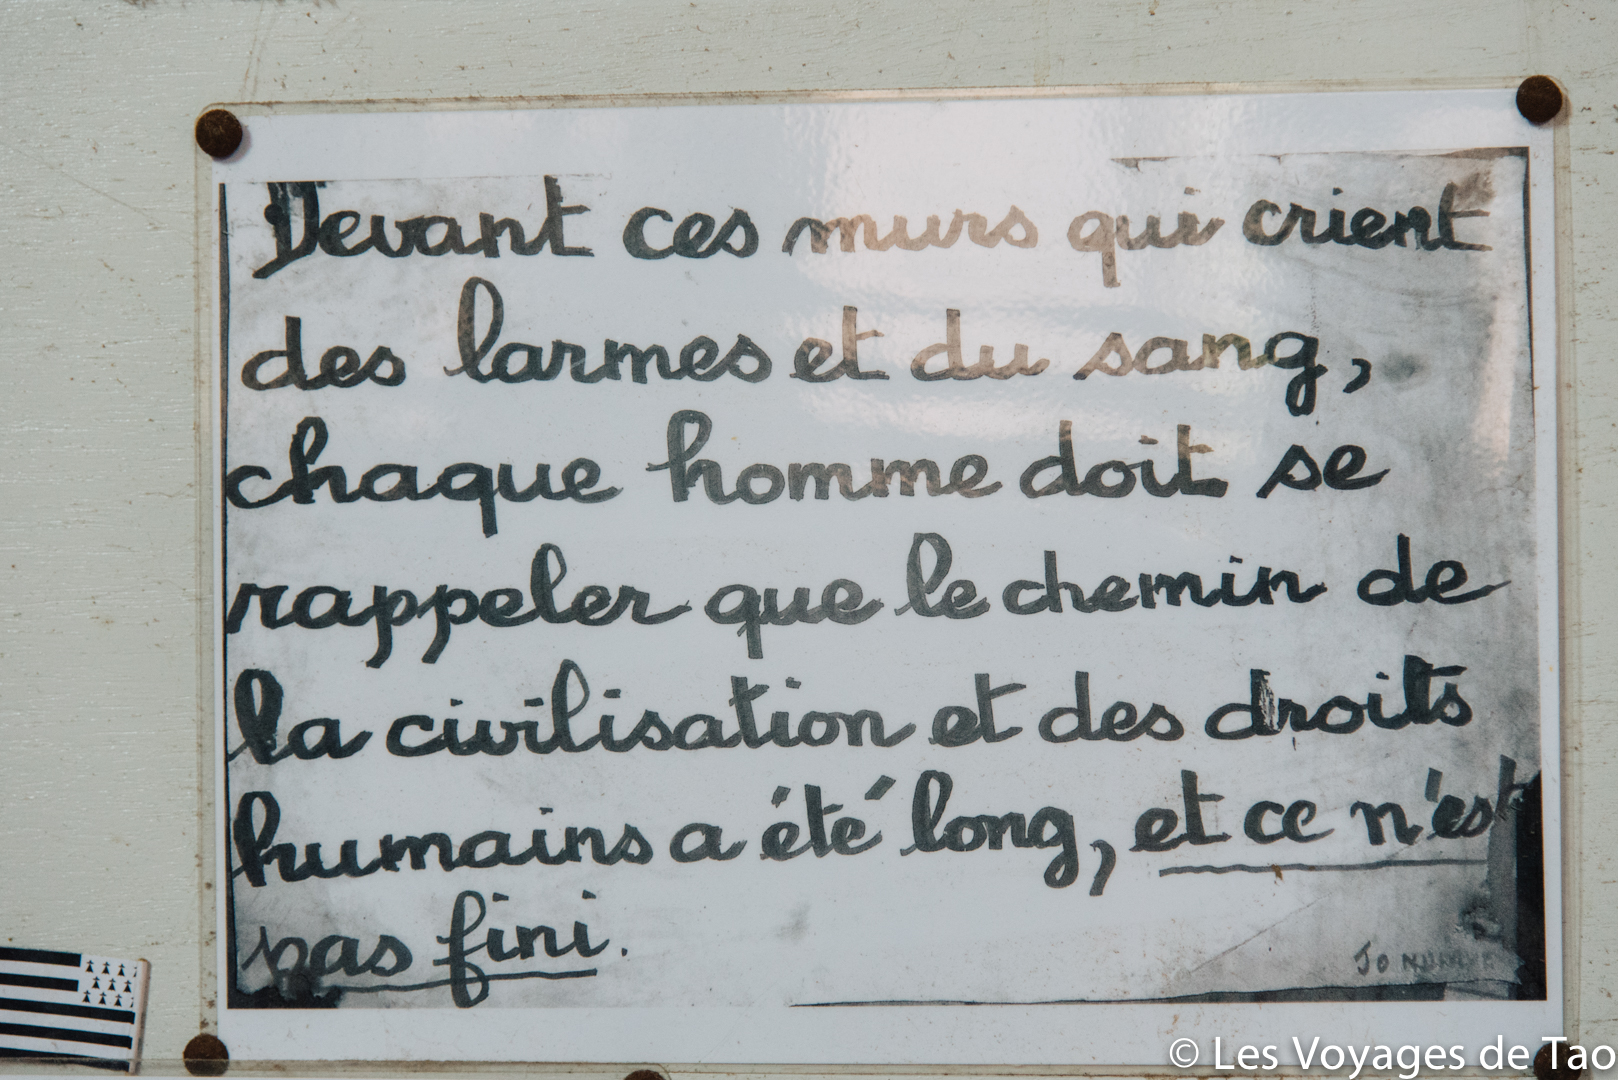 Devant ces murs qui crient
des larmes et du sang,
chaque homme doit se
rappeler que le chemin de
la civilisation et des droits
humains a été long, et ce n'est
pas fini.
Jo
© Les Voyages de Tao